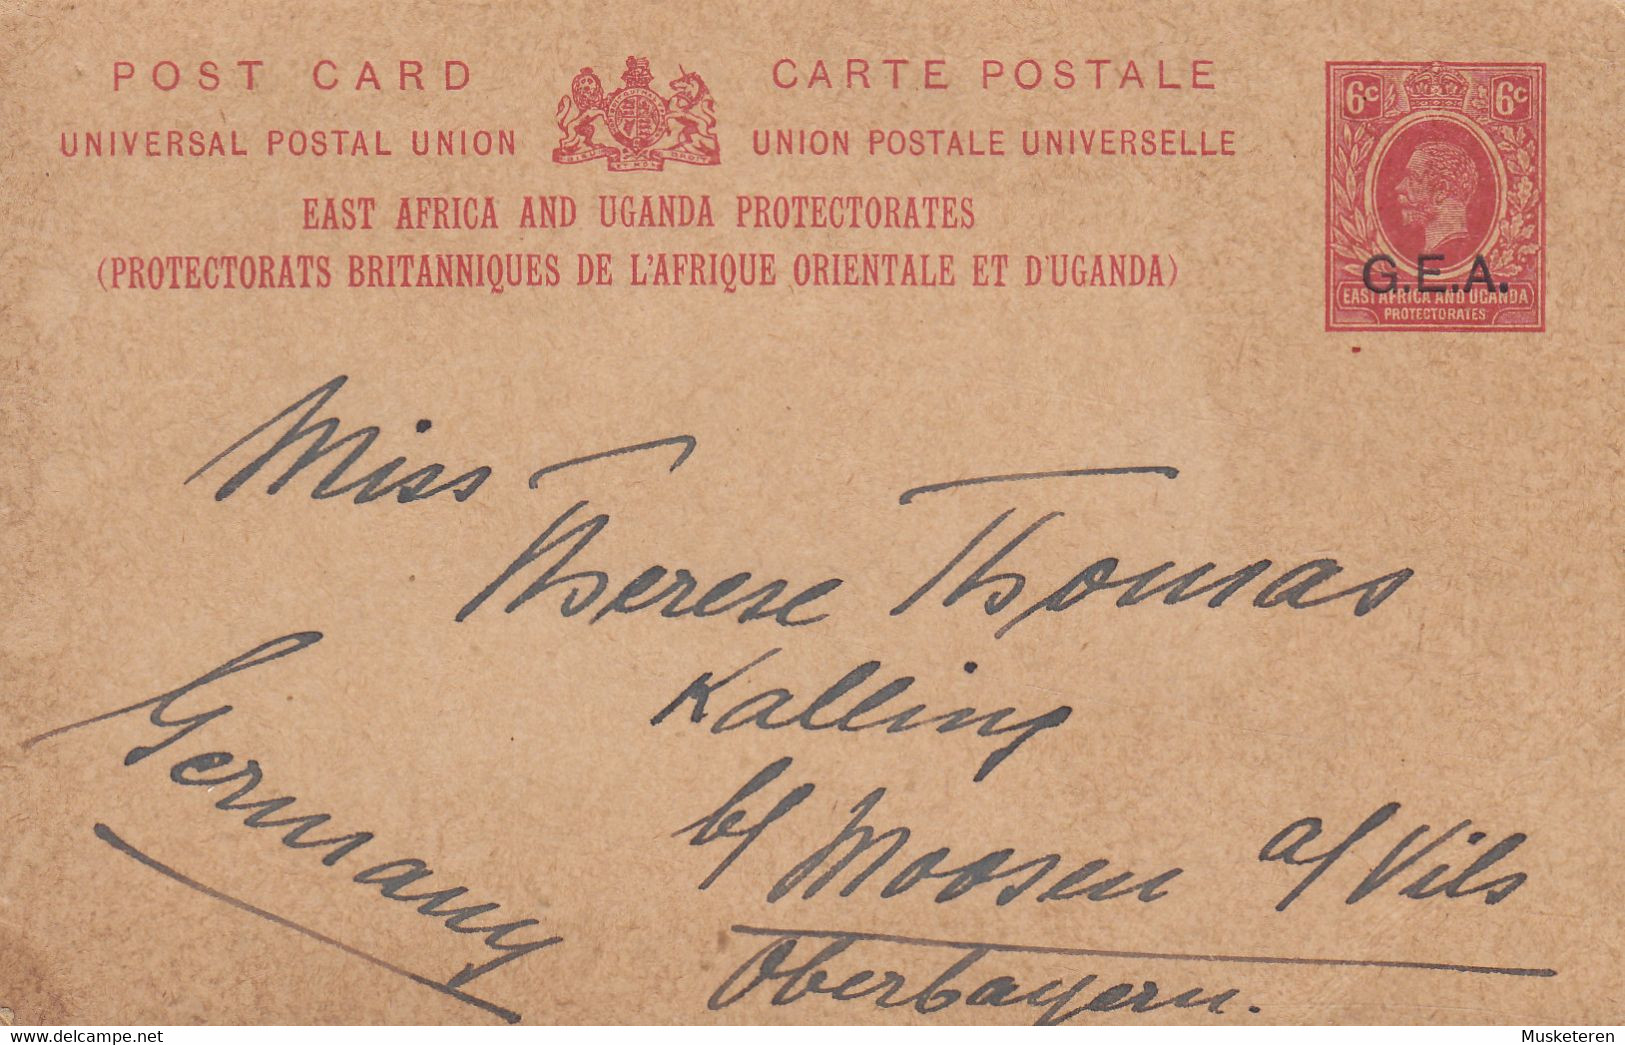 POST CARD
CARTE POSTALE
UNIVERSAL POSTAL UNION
UNION POSTALE UNIVERSELLE
EAST AFRICA AND UGANDA PROTECTORATES
(PROTECTORATS BRITANNIQUES DE L'AFRIQUE ORIENTALE ET D'UGANDA)
6c 6c
G.E.A.
EAST AFRICA AND UGANDA
PROTECTORATES
Miss
Therese Thomas
Kalling
b/ Moosen a/ Vils
Oberbayern.
Germany
Musketeren delcampe.net